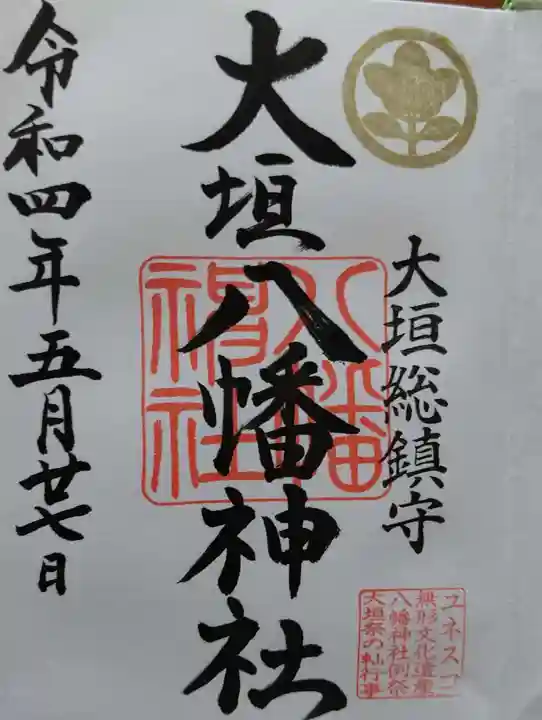 大垣総鎮守
大垣八幡神社
八幡
神社
令和四年五月廿七日
ユネスコ
無形文化遺産
八幡神社例祭
大垣祭の䡄行事